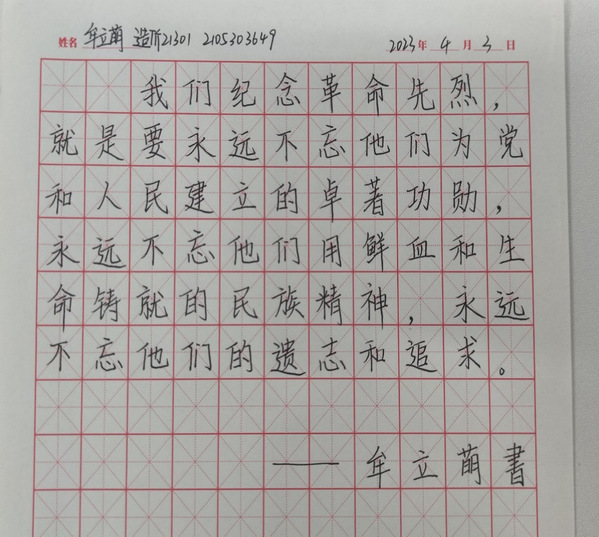 姓名 牟立萌 造价21301 2105303649 2023年 4月 3日
我们纪念革命先烈，
就是要永远不忘他们为党
和人民建立的卓著功勋，
永远不忘他们用鲜血和生
命铸就的民族精神，永远
不忘他们的遗志和追求。
——牟立萌書